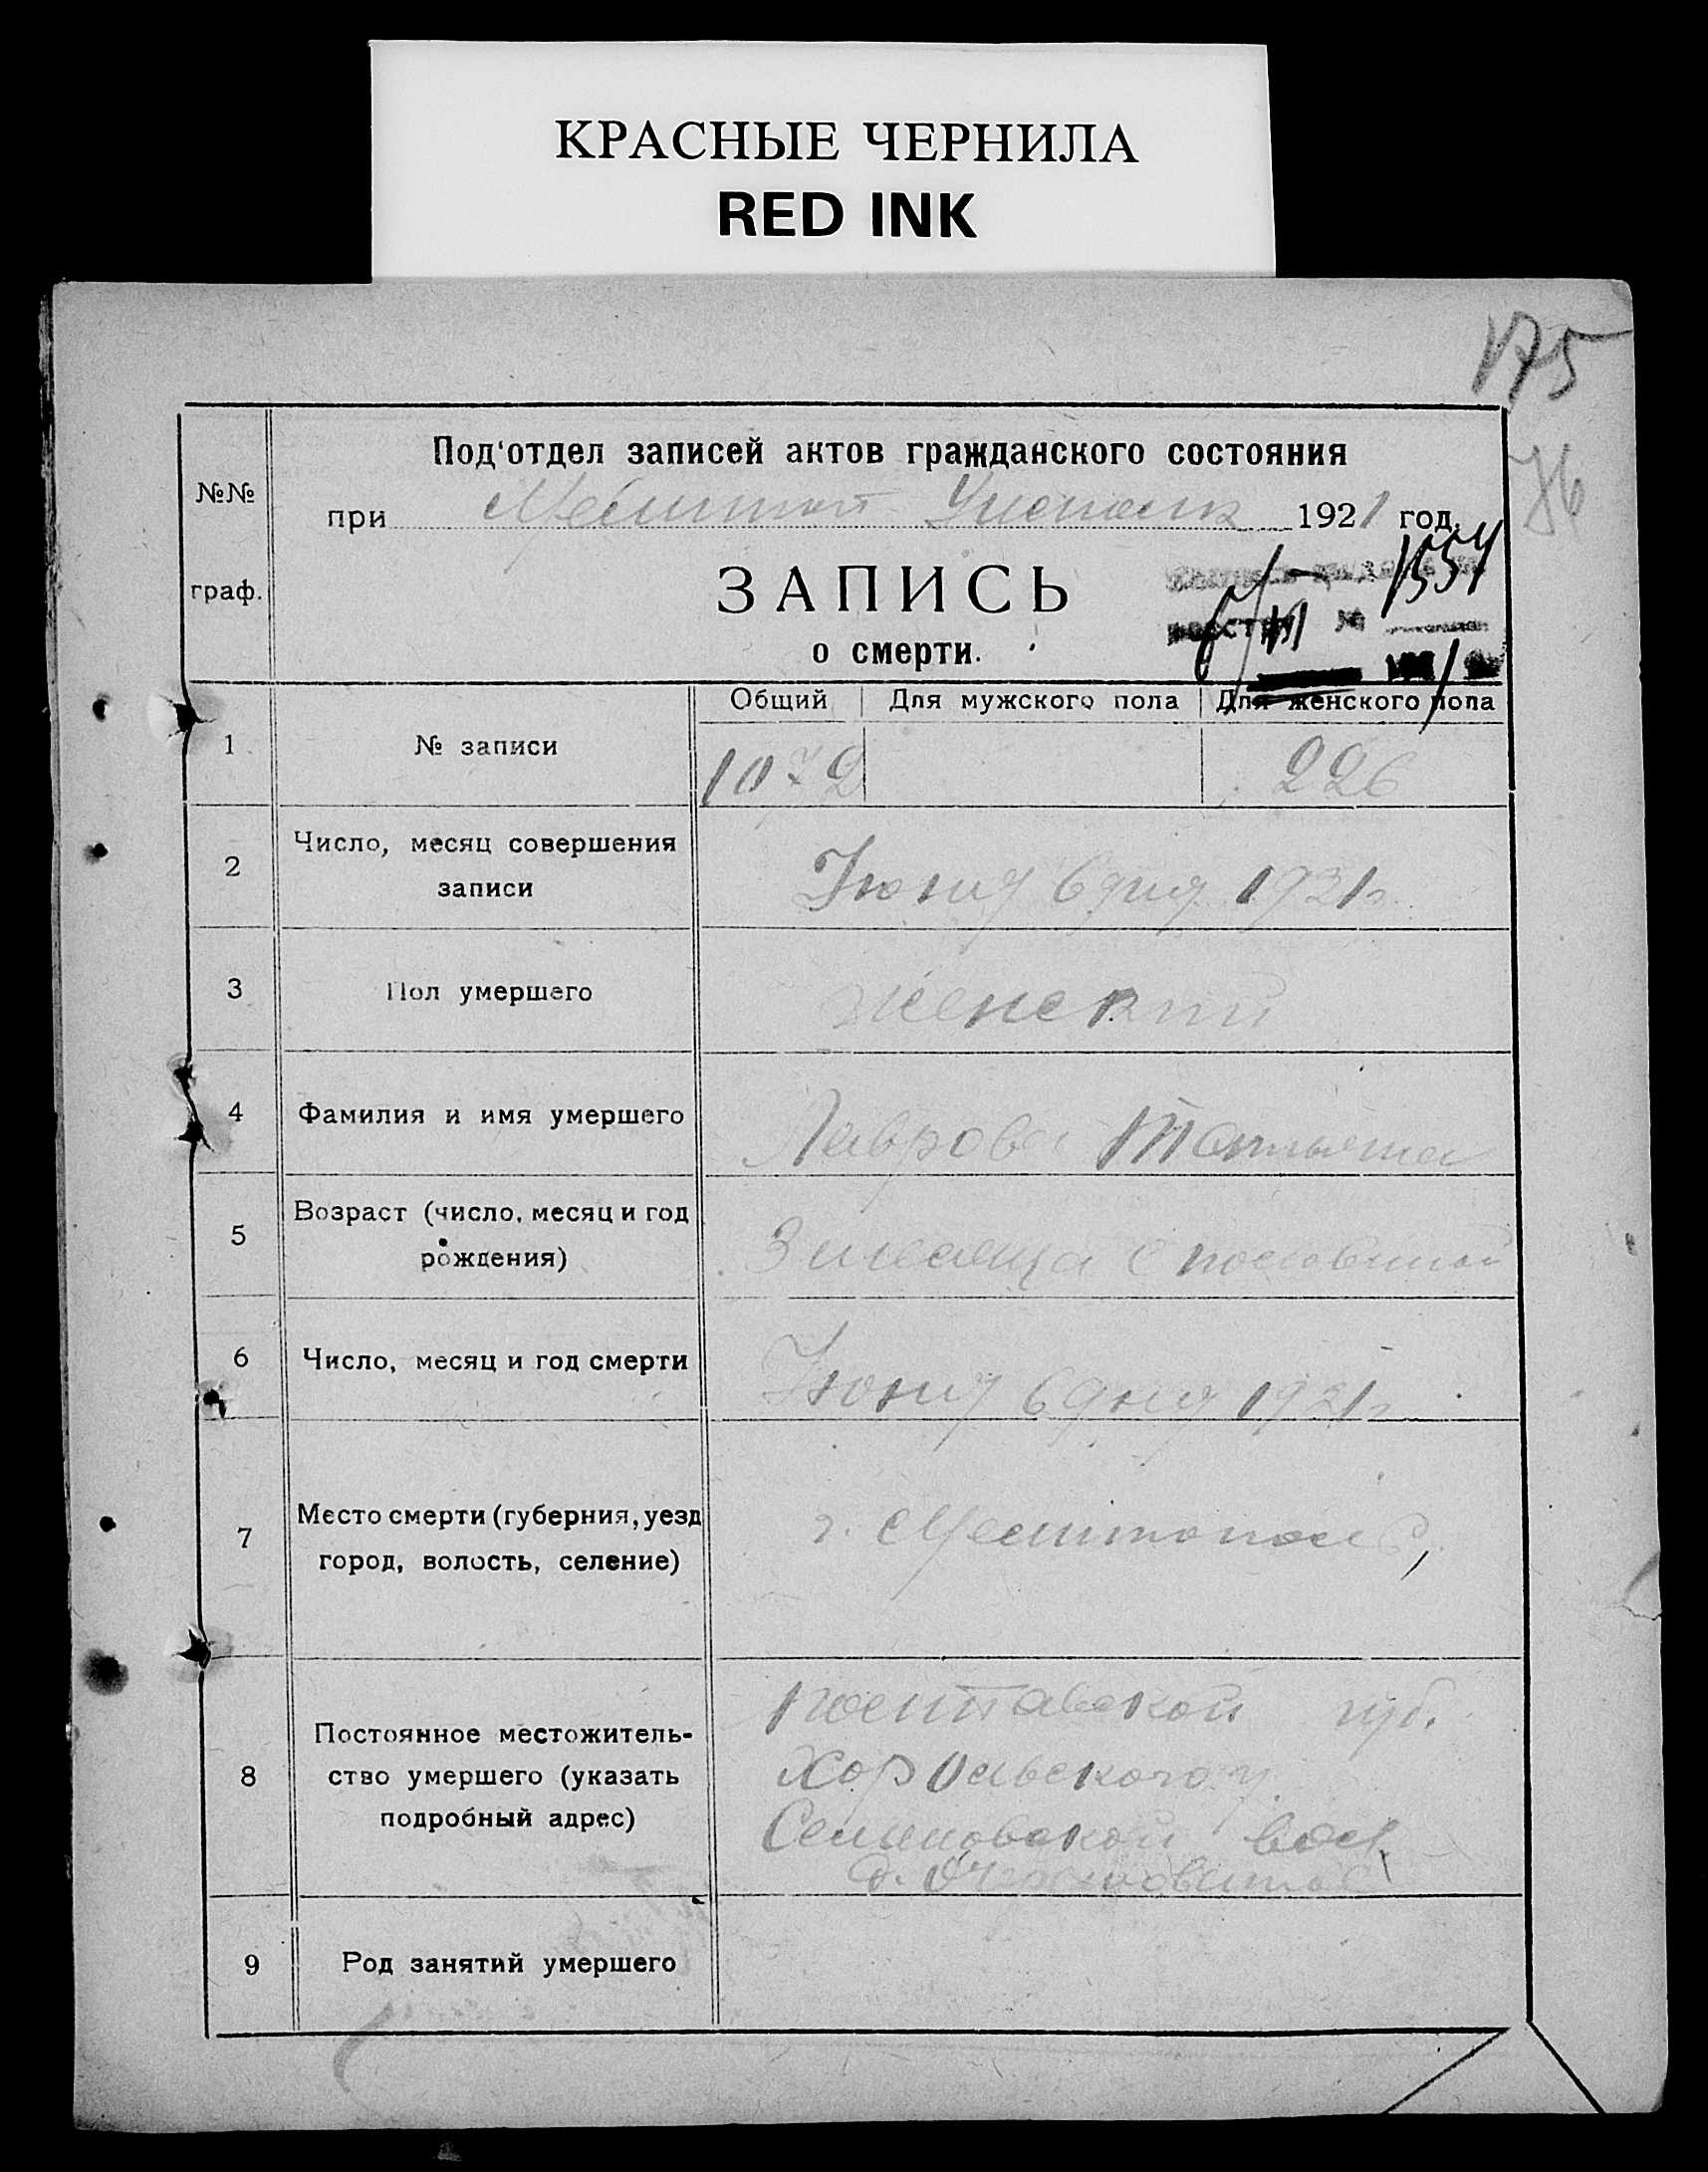 КРАСНЫЕ ЧЕРНИЛА
RED INK
175
76
№№
граф.
Под'отдел записей актов гражданского состояния
при Мелитоп 1921 год.
ЗАПИСЬ
о смерти.
1557
№
Общий Для мужского пола Для женского пола
1 № записи 1072 226
2 Число, месяц совершения
записи
Июня 6 дня 1921 г.
3 Пол умершего женский
4 Фамилия и имя умершего Лаврова Татьяна
5 Возраст (число, месяц и год
рождения)
3 месяца с половиной
6 Число, месяц и год смерти Июня 6 дня 1921 г.
7 Место смерти (губерния, уезд
город, волость, селение)
г. Мелитополь,
8 Постоянное местожитель-
ство умершего (указать
подробный адрес)
Полтавской губ.
Хорольского у.
Семеновской вол.
д.
9 Род занятий умершего